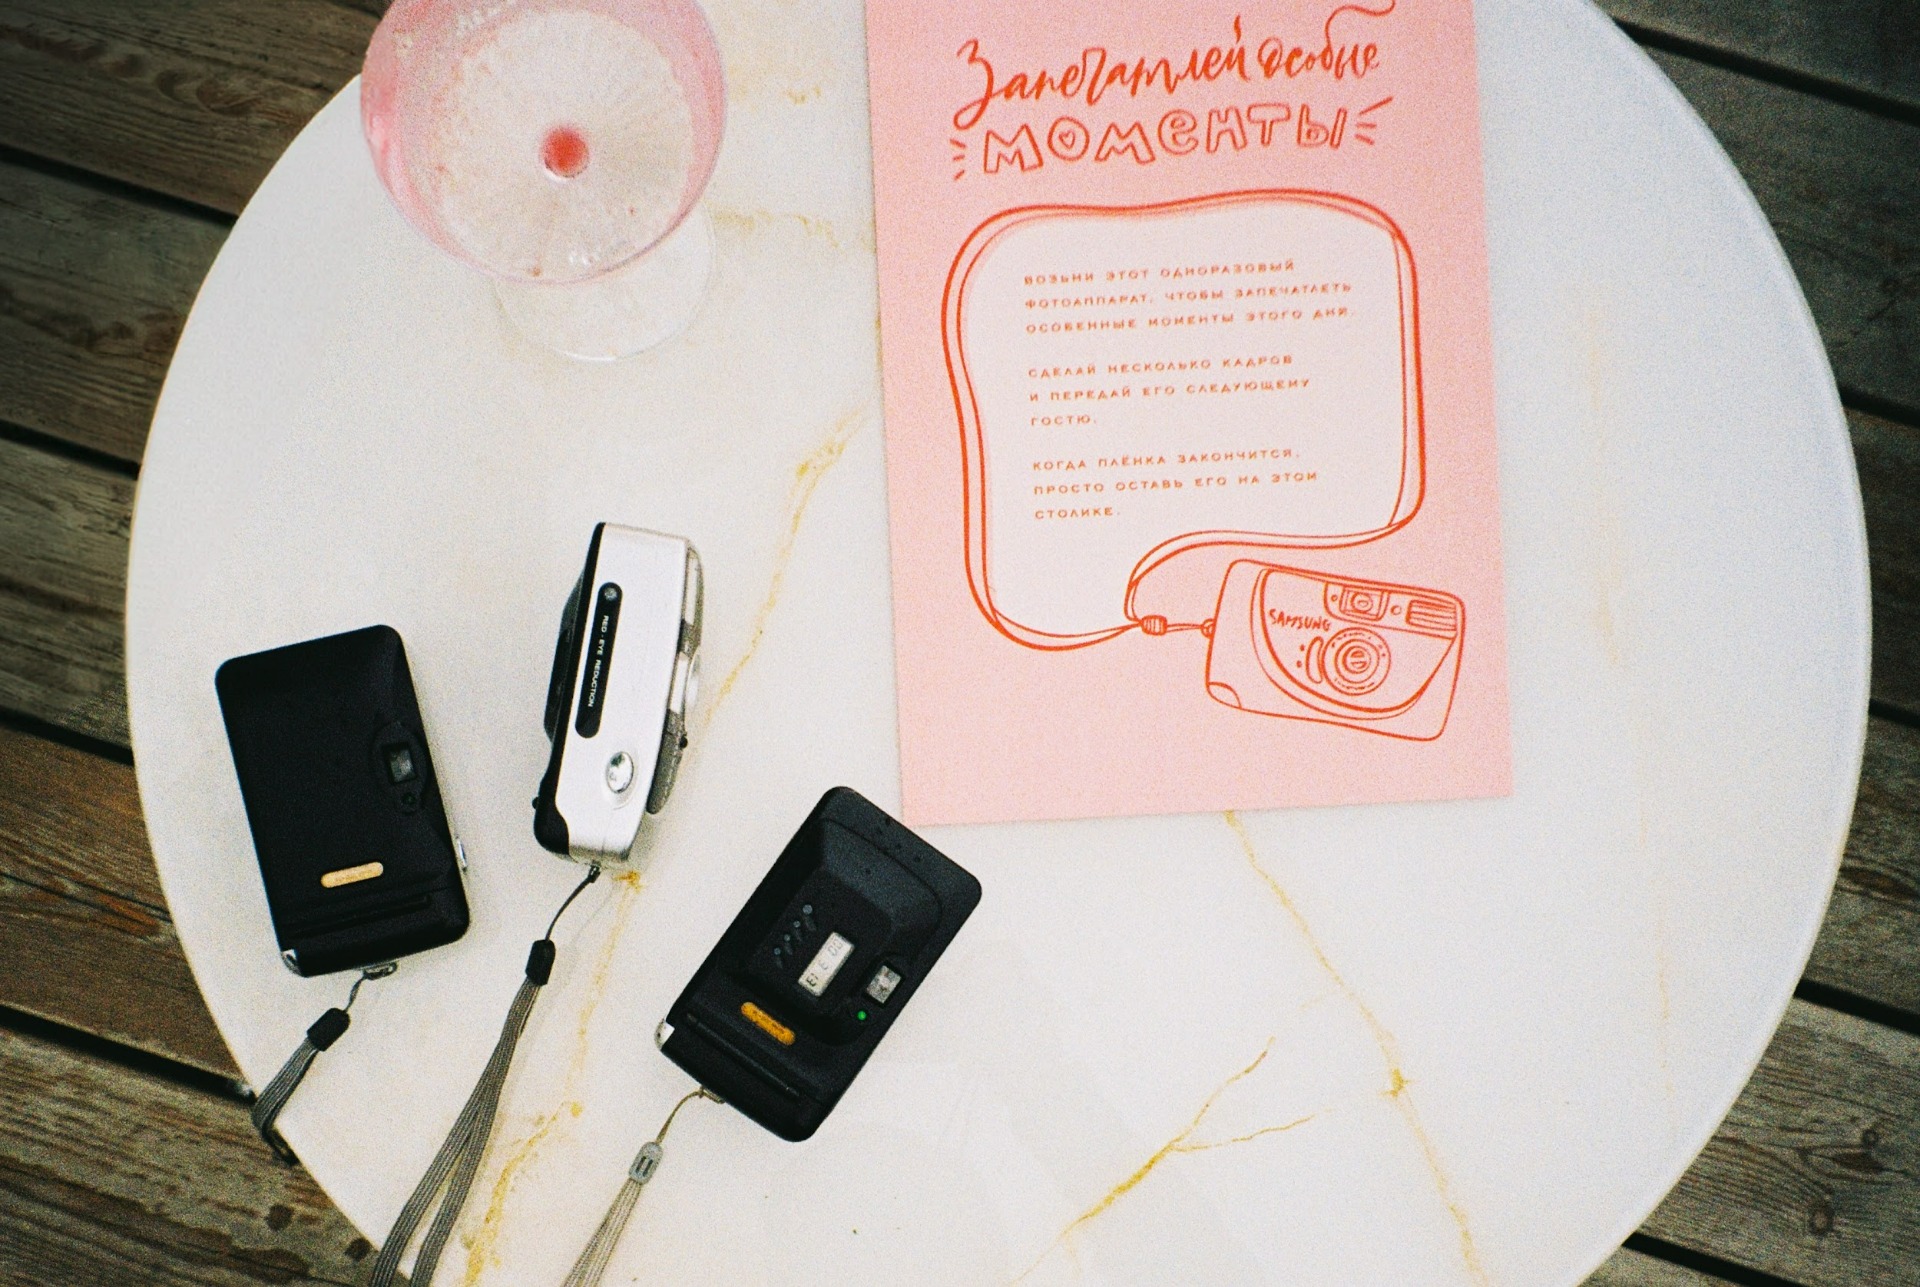 Запечатлей особые
МОМЕНТЫ
ВОЗЬМИ ЭТОТ ОДНОРАЗОВЫЙ
ФОТОАППАРАТ, ЧТОБЫ ЗАПЕЧАТЛЕТЬ
ОСОБЕННЫЕ МОМЕНТЫ ЭТОГО ДНЯ.
СДЕЛАЙ НЕСКОЛЬКО КАДРОВ
И ПЕРЕДАЙ ЕГО СЛЕДУЮЩЕМУ
ГОСТЮ.
КОГДА ПЛЁНКА ЗАКОНЧИТСЯ,
ПРОСТО ОСТАВЬ ЕГО НА ЭТОМ
СТОЛИКЕ.
SAMSUNG
RED-EYE REDUCTION